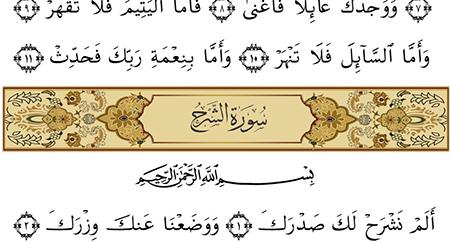 ﴿٧﴾ وَوَجَدَكَ عَآئِلًا فَأَغْنَىٰ ﴿٨﴾ فَأَمَّا ٱلْيَتِيمَ فَلَا تَقْهَرْ ﴿٩﴾
وَأَمَّا ٱلسَّآئِلَ فَلَا تَنْهَرْ ﴿١٠﴾ وَأَمَّا بِنِعْمَةِ رَبِّكَ فَحَدِّثْ ﴿١١﴾
سُورَةُ الشَّرْحِ
بِسْمِ ٱللَّهِ ٱلرَّحْمَٰنِ ٱلرَّحِيمِ
أَلَمْ نَشْرَحْ لَكَ صَدْرَكَ ﴿١﴾ وَوَضَعْنَا عَنكَ وِزْرَكَ ﴿٢﴾